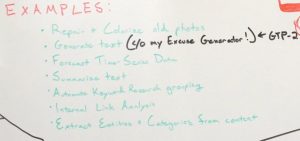 EXAMPLES:
• Repair + Colorize old photos
• Generate text (s/o my Excuse Generator!) ← GTP-2
• Forecast Time Series Data
• Summarize text
• Automate Keyword Research grouping
• Internal Link Analysis
• Extract Entities + Categories from content